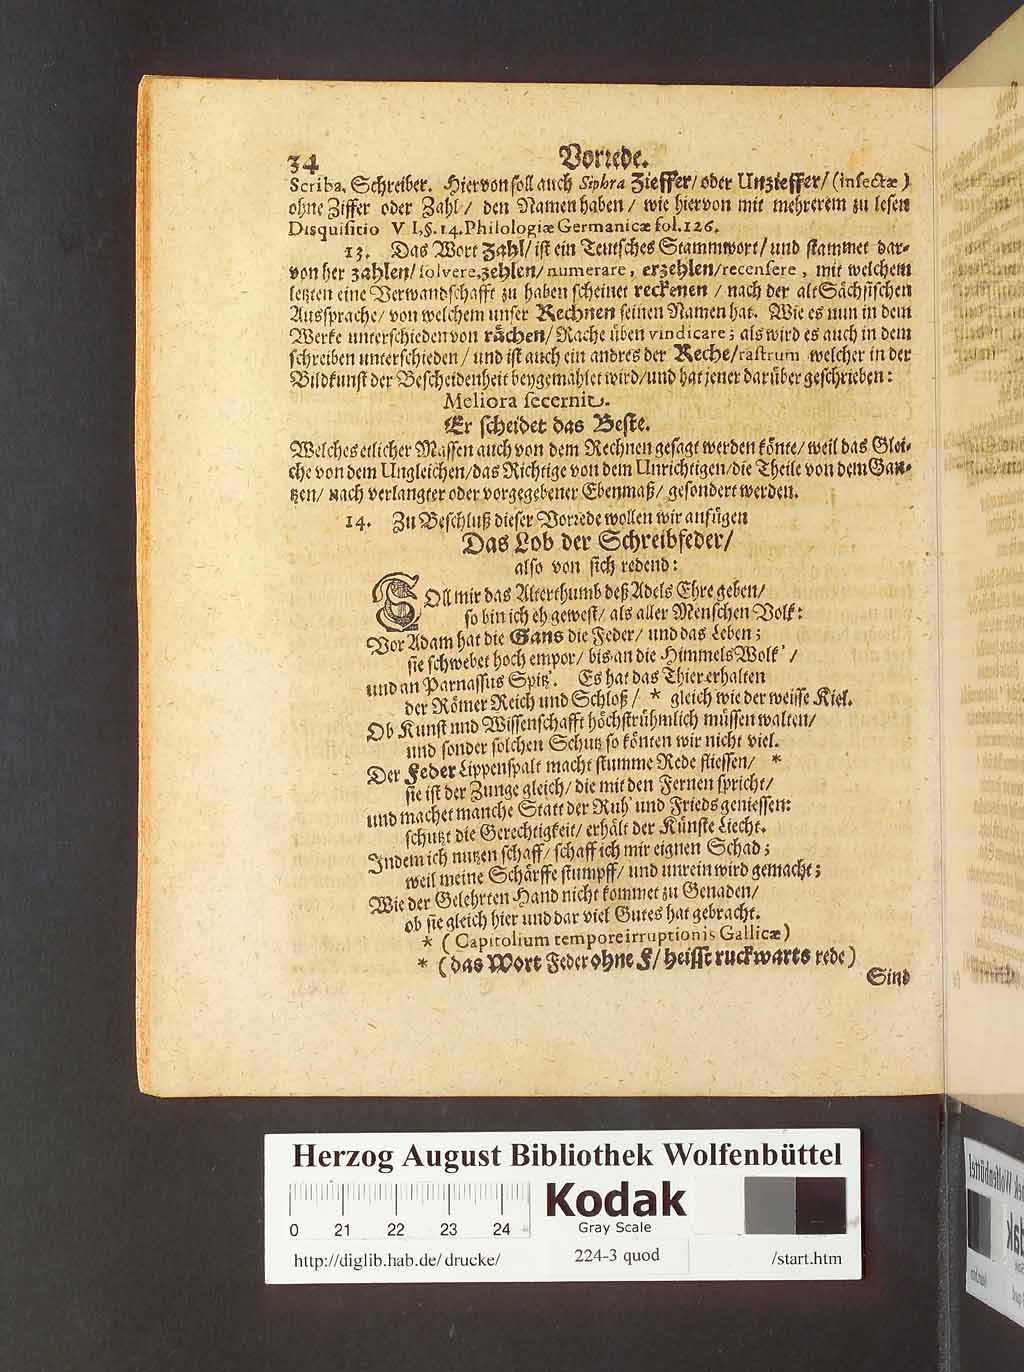 34 Vorrede.
Scriba, Schreiber. Hiervon soll auch Siphra Zieffer/ oder Unzieffer/ (insectæ)
ohne Ziffer oder Zahl/ den Namen haben/ wie hiervon mit mehrerem zu lesen
Disquisitio VI, §. 14. Philologiæ Germanicæ fol. 126.
13. Das Wort Zahl/ ist ein Teutsches Stammwort/ und stammet dar-
von her zahlen/ solvere, zehlen/ numerare, erzehlen/ recensere, mit welchem
letzten eine Verwandschafft zu haben scheinet reckenen / nach der alt Sächsischen
Aussprache/ von welchem unser Rechnen seinen Namen hat. Wie es nun in dem
Werke unterschieden von rächen/ Rache üben vindicare; als wird es auch in dem
schreiben unterschieden/ und ist auch ein andres der Reche/ rastrum welcher in der
Bildkunst der Bescheidenheit beygemahlet wird/ und hat jener darüber geschrieben:
Meliora secernit.
Er scheidet das Beste.
Welches etlicher Massen auch von dem Rechnen gesagt werden könte/ weil das Glei-
che von dem Ungleichen/ das Richtige von dem Unrichtigen/ die Theile von dem Gan-
tzen/ nach verlangter oder vorgegebener Ebenmaß/ gesondert werden.
14. Zu Beschluß dieser Vorrede wollen wir anfügen
Das Lob der Schreibfeder/
also von sich redend:
SOll mir das Alterthumb deß Adels Ehre geben/
so bin ich eh gewest/ als aller Menschen Volk:
Vor Adam hat die Gans die Feder/ und das Leben;
sie schwebet hoch empor/ bis an die Himmels Wolk'/
und an Parnassus Spitz'. Es hat das Thier erhalten
der Römer Reich und Schloß/ * gleich wie der weisse Kiel.
Ob Kunst und Wissenschafft höchstrühmlich müssen walten/
und sonder solchen Schutz so könten wir nicht viel.
Der Feder Lippenspalt macht stumme Rede fliessen/ *
sie ist der Zunge gleich/ die mit den Fernen spricht/
und machet manche Statt der Ruh' und Frieds geniessen:
schutzt die Gerechtigkeit/ erhält der Künste Liecht.
Indem ich nutzen schaff/ schaff ich mir eignen Schad;
weil meine Schärffe stumpff/ und unrein wird gemacht;
Wie der Gelehrten Hand nicht kommet zu Genaden/
ob sie gleich hier und dar viel Gutes hat gebracht.
* (Capitolium tempore irruptionis Gallicæ)
* (das Wort Feder ohne F/ heisst ruckwarts rede)
Sind
Herzog August Bibliothek Wolfenbüttel
Kodak
Gray Scale
0 21 22 23 24
http://diglib.hab.de/drucke/ 224-3 quod /start.htm